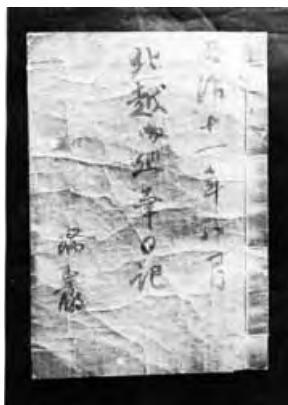 明治十一年八月
北越御巡幸日記
瑞巌